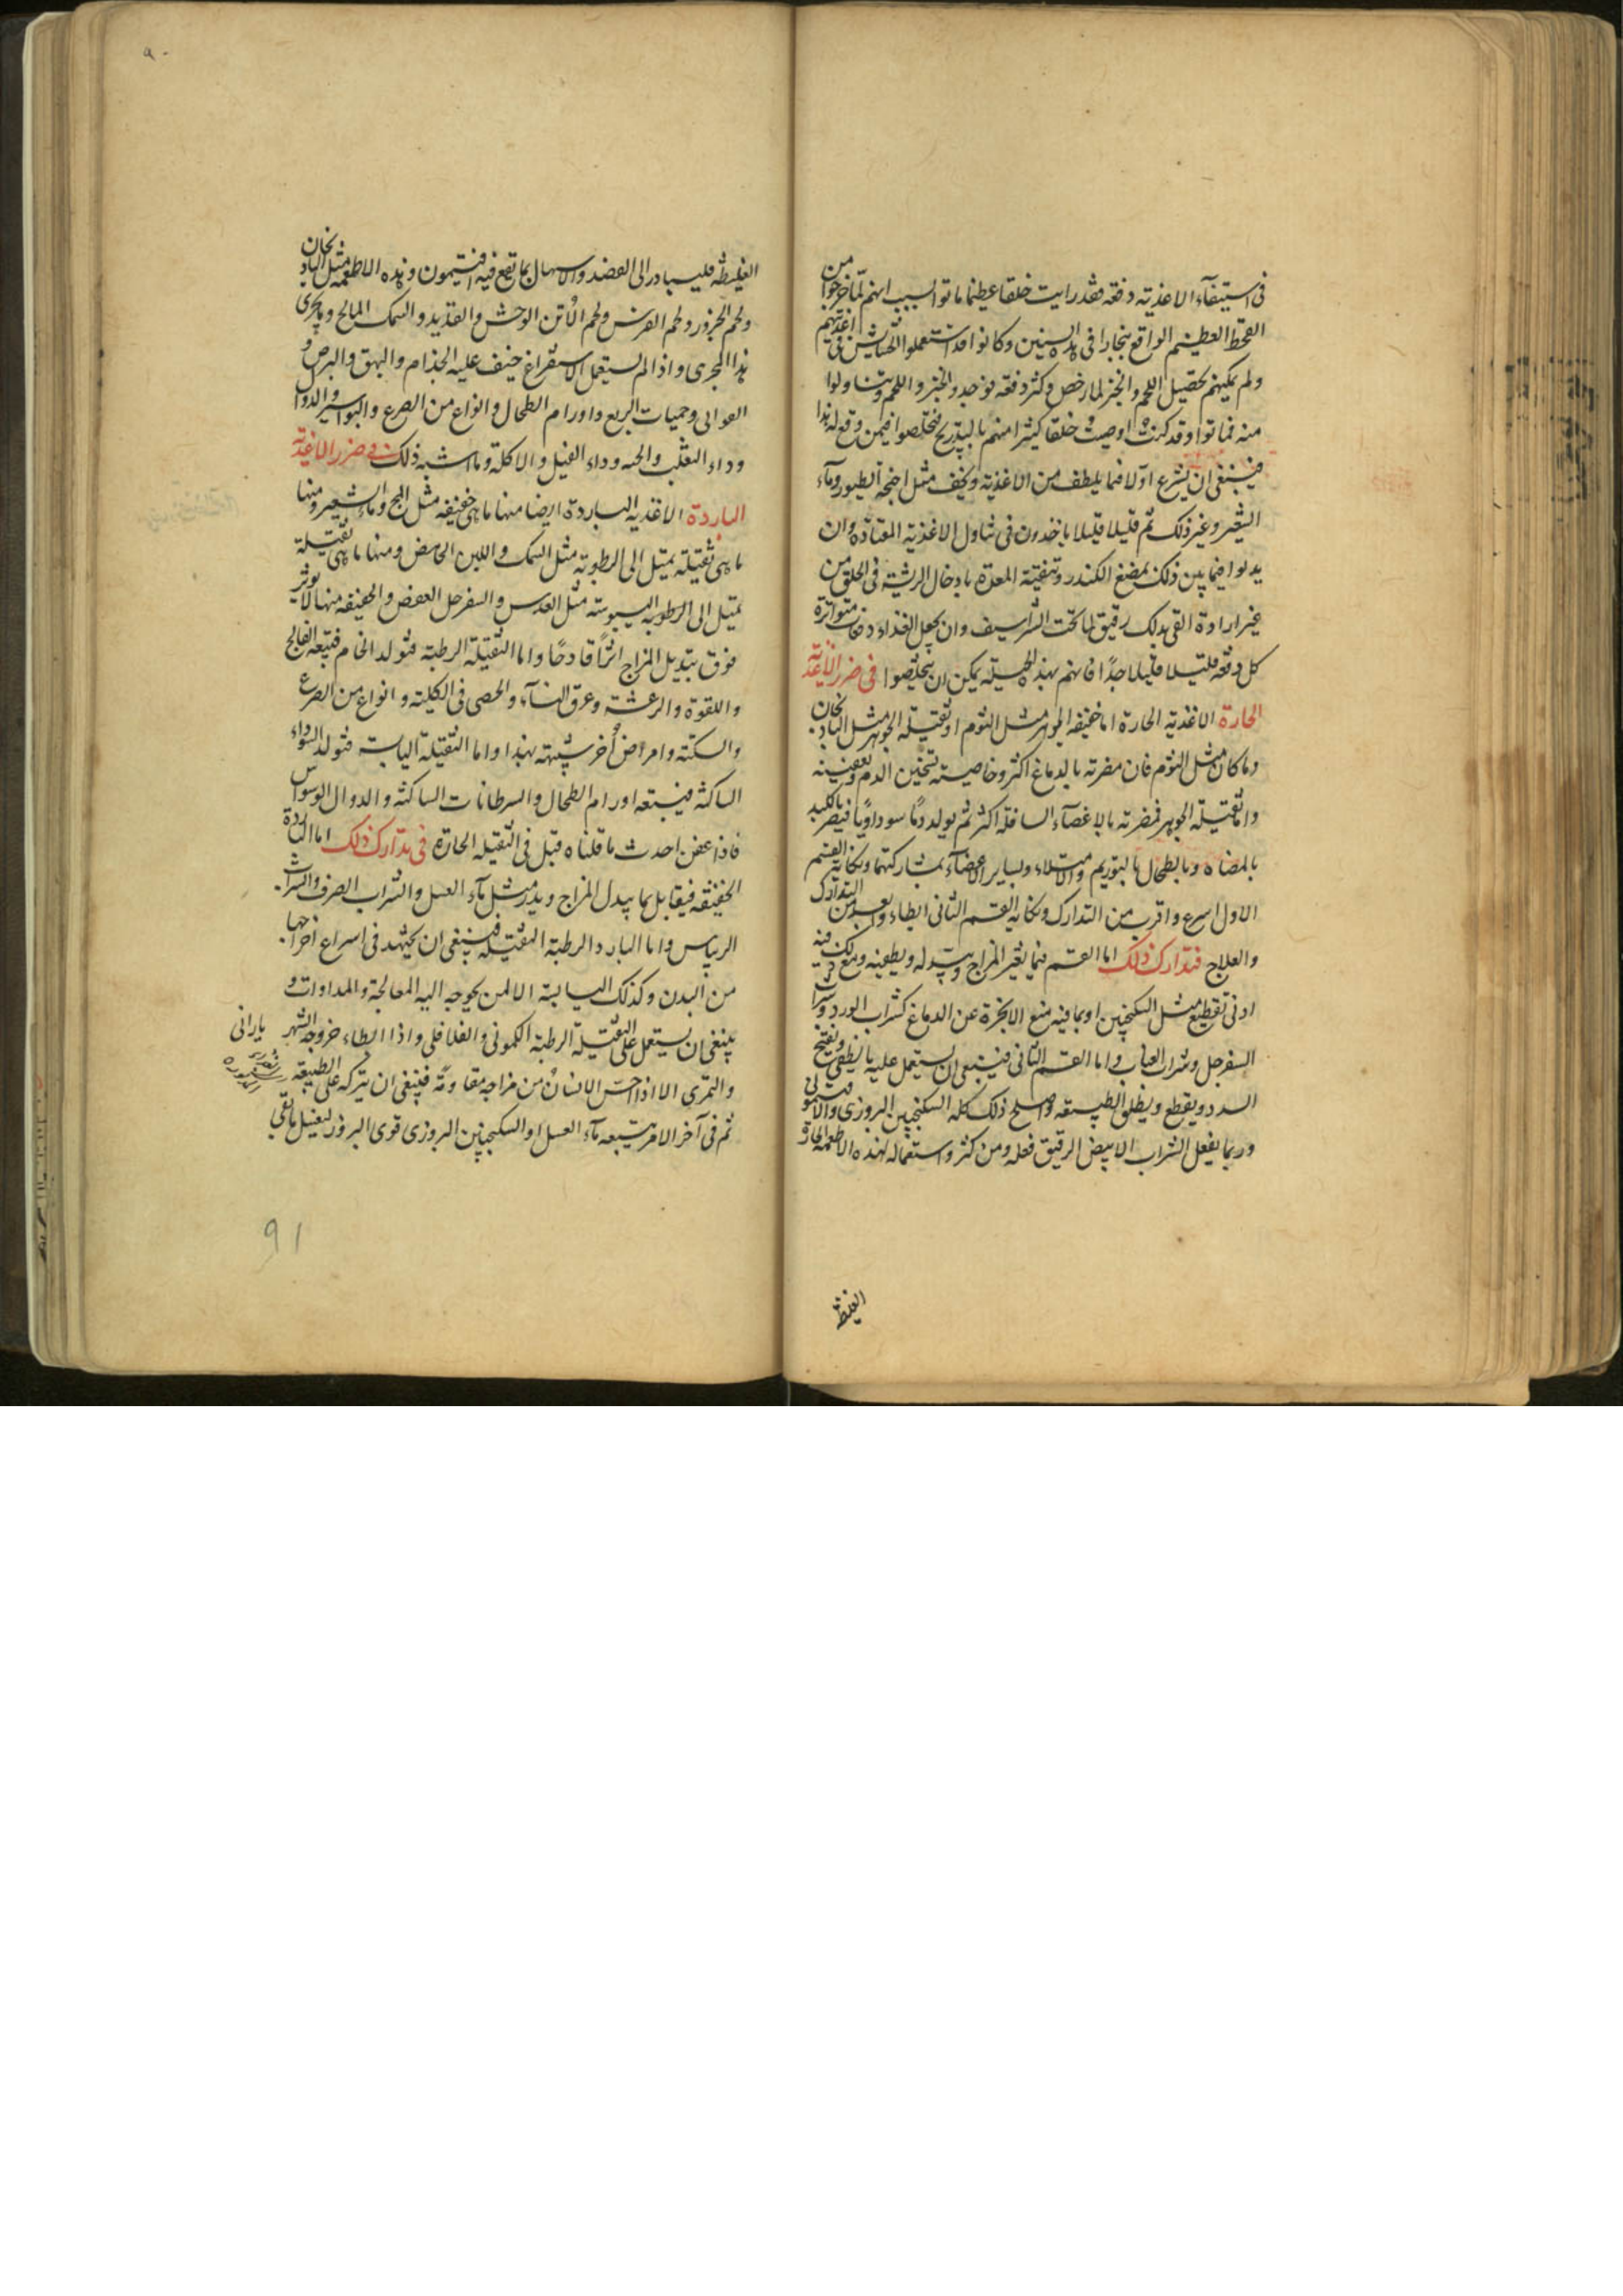 فى استيفآء الاغذية دفعة فقد رايت خلقا عظيما ماتوا لسبب انهم لما خرجوا من
القحط العظيم الواقع ببخارا فى هذه السنين وكانوا قد استعملوا الحشايش فى اغذيتهم
ولم يمكنهم تحصيل اللحم والخبز لما رخص وكثر دفعة نوجد والخبز واللحم وتناولوا
منه فماتوا وقد كنت اوصيت خلقا كثيرا منهم بالتدريج فتخلصوا فيمن وقع له هذا
فينبغى ان يشرع اولا فيما يلطف من الاغذية ويخف مثل اجنحة الطيور وماء
الشعير وغير ذلك ثم قليلا قليلا ياخذون فى تناول الاغذية المعتادة وان
يدلوا فيما بين ذلك بمضغ الكندر وتنقية المعدة بادخال الريشة فى الحلق من
غير ارادة القى بدلك رقيق لما تحت الشراسيف وان يجعل الغذاء دفعات متواترة
كل دفعة قليلا قليلا جدا فانهم بهذه الحيلة يمكن ان يتخلصوا فى ضرر الاغذية
الحارة الاغذية الحارة اما خفيفة الجوهر مثل الثوم او ثقيلة الجوهر مثل الباذنجان
وما كان مثل الثوم فان مضرته بالدماغ اكثر وخاصيته تسخين الدم وتعفينه
واما ثقيلة الجوهر فمضرته بالاعضآء السافلة اكثر ثم يولد دما سوداويا فيضر بالكبد
بالمضاه وبالطحال بالتوريم والامتلاء ولساير الاعضآء بمشاركتهما ونكاية القسم
الاول اسرع واقرب من التدارك ونكاية القسم الثانى ابطاء وابعد من التدارك
والعلاج فتدارك ذلك اما القسم فيما يغير المزاج ويبدله ويطفيه ومع ذلك فيه
ادنى تقطيع مثل السكنجبين او بما فيه منع الابخرة عن الدماغ كشراب الورد وشراب
السفرجل وشراب العناب واما القسم الثانى فينبغى ان يستعمل عليه ما يطفى ويفتح
السدد ويقطع ويطلق الطبيعة واصلح ذلك كله السكنجبين البزورى والافتيمونى
وربما يفعل الشراب الابيض الرقيق فعله ومن كثر استعماله لهذه الاطعمة الحارة
الغليظة
٩٠
الغليظة فليبادر الى الفصد والاسهال بما تقع فيه افتيمون وهذه الاطعمة مثل الباذنجان
ولحم الجزور ولحم الفرس ولحم الأتن الوحش والقديد والسمك المالح وما يجرى
هذا المجرى واذا لم يستعمل الاستفراغ خيف عليه الجذام والبهق والبرص و
العوابى وحميات الربع واورام الطحال وانواع من الصرع والبواسير والدوالى
وداء الثعلب والحية وداء الفيل والاكلة وما اشبه ذلك فى ضرر الاغذية
الباردة الاغذية الباردة ايضا منها ما هى خفيفة مثل البج وماء الشعير ومنها
ما هى ثقيلة يميل الى الرطوبة مثل السمك واللبن الحامض ومنها ما هى ثقيلة
تميل الى الرطوبة اليبوسة مثل العدس والسفرجل العفص والخفيفة منها لا يوثر
فوق تبديل المزاج اثرا قادحا واما الثقيلة الرطبة فتولد الخام فيتبعه الفالج
واللقوة والرعشة وعرق النسآء والحصى فى الكلية وانواع من الصرع
والسكتة وامراض أخر شبيهة بهذا واما الثقيلة اليابسة فتولد السوداء
الساكنة فيتبعه اورام الطحال والسرطانات الساكنة والدوالى الوسواس
فاذا عفن احدث ما قلناه قبل فى الثقيلة الحارة فى تدارك ذلك اما الباردة
الخفيفة فيقابل بما يبدل المزاج ويدر مثل ماء العسل والشراب الصرف والشراب
الريباس واما البارد الرطبة الثقيلة فينبغى ان يجتهد فى اسراع اخراجها
من البدن وكذلك اليابسة الا لمن يحوجه اليه المعالجة والمداوات و
ينبغى ان يستعمل على الثقيلة الرطبة الكمونى والفلافلى واذا ابطاء خروجه الشهرياراني
والتمرى الا اذا احس الانسان من مزاجه مقاومة فينبغى ان يتركه على الطبيعة
ثم فى آخر الامر يتبعه مآء العسل او السكنجبين البزورى قوى البزور ليغسل ما بقى
91